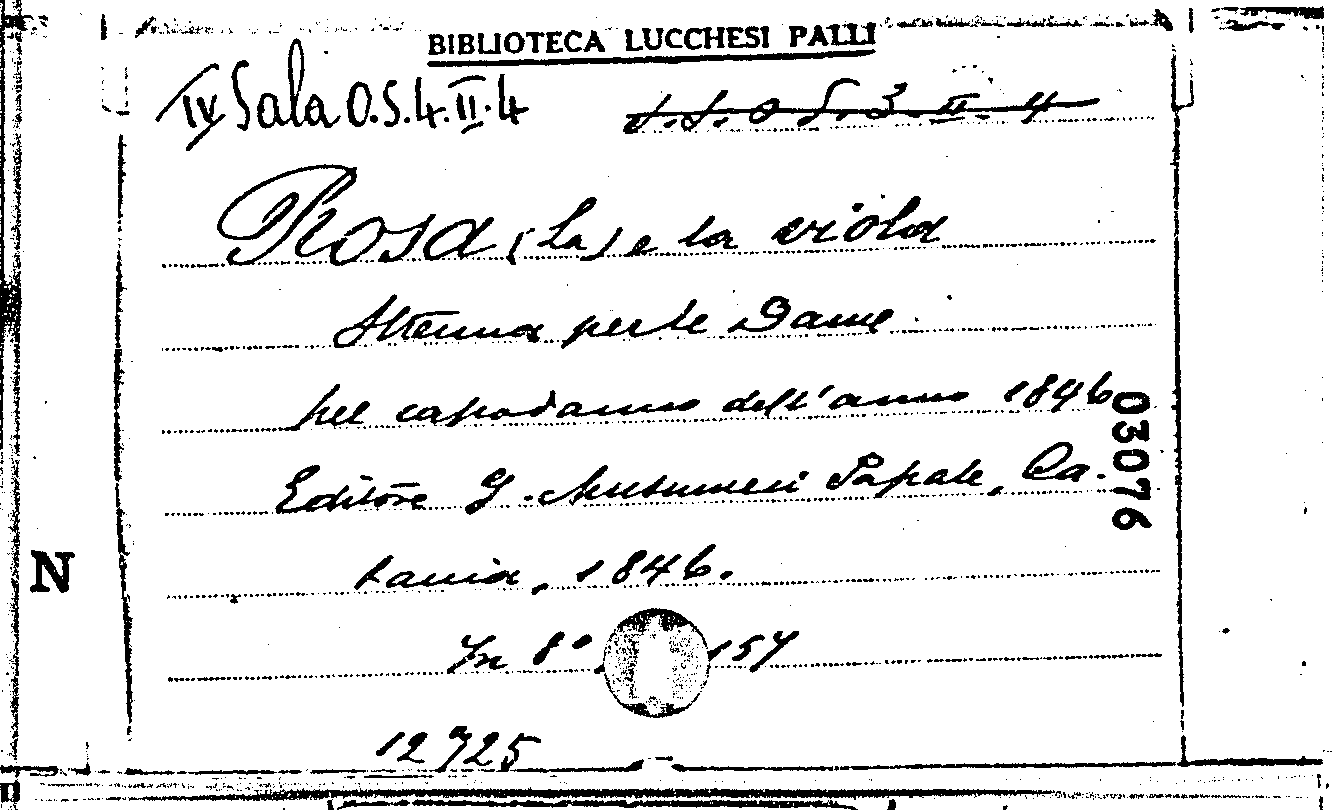 BIBLIOTECA LUCCHESI PALLI
IV Sala O.S.4.II.4
S.S. O S. 3. II. 4
Rosa (La) e la viola
Strenna per le Dame
pel capodanno dell'anno 1846
Editore G. Musumeci Papale, Ca-
tania, 1846.
In 8° 157
12725
03076
N